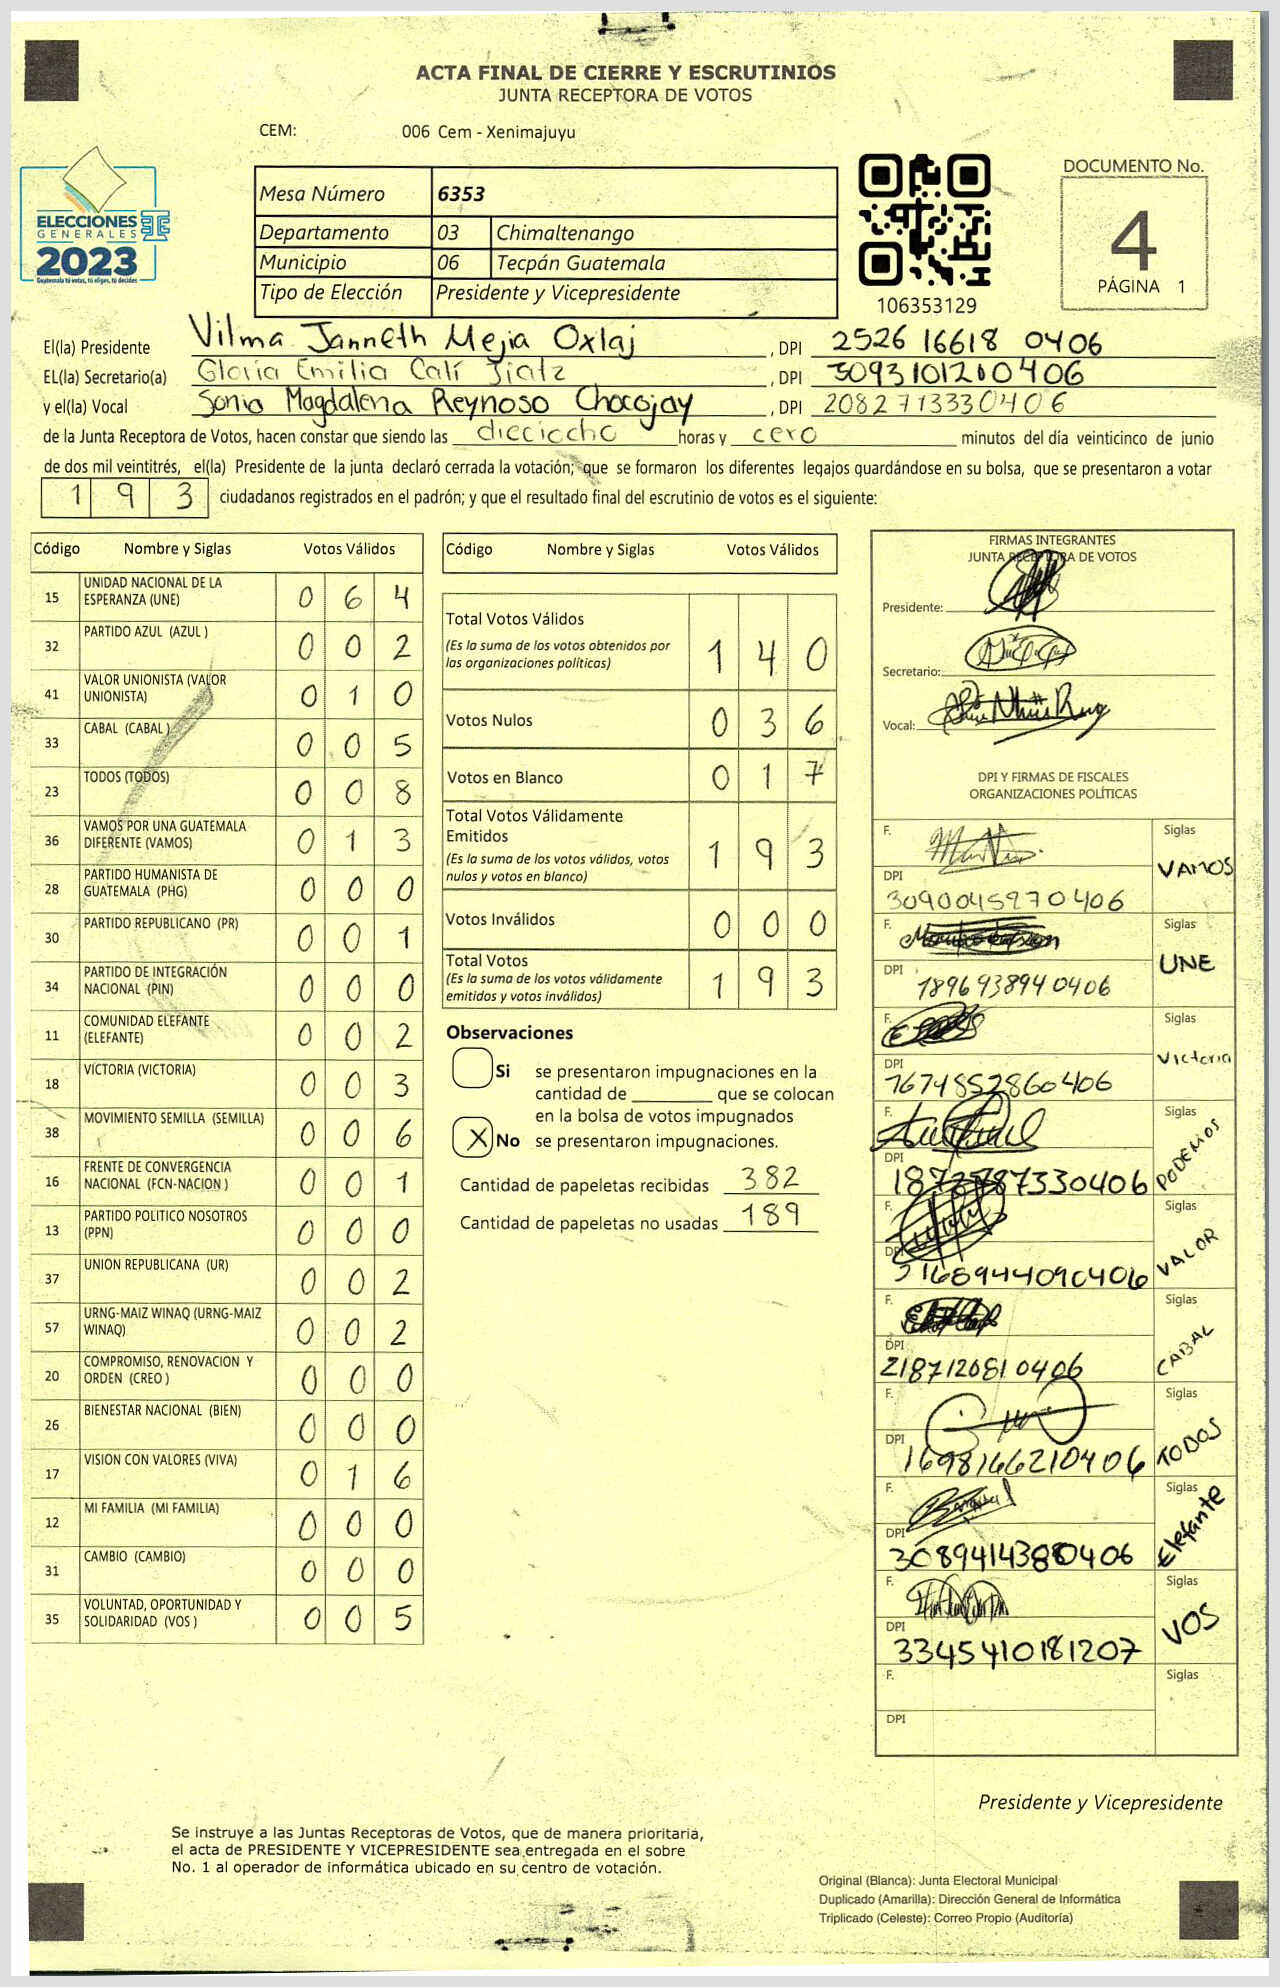 ACTA FINAL DE CIERRE Y ESCRUTINIOS
JUNTA RECEPTORA DE VOTOS
CEM: 006 Cem - Xenimajuyu
ELECCIONES
GENERALES
2023
Guatemala tú votas, tú eliges, tú decides
TSE
Mesa Número 6353
Departamento 03 Chimaltenango
Municipio 06 Tecpán Guatemala
Tipo de Elección Presidente y Vicepresidente
106353129
DOCUMENTO No.
4
PÁGINA 1
El(la) Presidente Vilma Janneth Mejia Oxlaj , DPI 2526 16618 0406
EL(la) Secretario(a) Gloria Emilia Calí Jiatz , DPI 3093101210406
y el(la) Vocal Sonia Magdalena Reynoso Chocojay , DPI 2082713330406
de la Junta Receptora de Votos, hacen constar que siendo las dieciocho horas y cero minutos del día veinticinco de junio
de dos mil veintitrés, el(la) Presidente de la junta declaró cerrada la votación; que se formaron los diferentes legajos guardándose en su bolsa, que se presentaron a votar
1 9 3 ciudadanos registrados en el padrón; y que el resultado final del escrutinio de votos es el siguiente:
Código Nombre y Siglas Votos Válidos
15 UNIDAD NACIONAL DE LA ESPERANZA (UNE) 0 6 4
32 PARTIDO AZUL (AZUL ) 0 0 2
41 VALOR UNIONISTA (VALOR UNIONISTA) 0 1 0
33 CABAL (CABAL ) 0 0 5
23 TODOS (TODOS) 0 0 8
36 VAMOS POR UNA GUATEMALA DIFERENTE (VAMOS) 0 1 3
28 PARTIDO HUMANISTA DE GUATEMALA (PHG) 0 0 0
30 PARTIDO REPUBLICANO (PR) 0 0 1
34 PARTIDO DE INTEGRACIÓN NACIONAL (PIN) 0 0 0
11 COMUNIDAD ELEFANTE (ELEFANTE) 0 0 2
18 VICTORIA (VICTORIA) 0 0 3
38 MOVIMIENTO SEMILLA (SEMILLA) 0 0 6
16 FRENTE DE CONVERGENCIA NACIONAL (FCN-NACION ) 0 0 1
13 PARTIDO POLITICO NOSOTROS (PPN) 0 0 0
37 UNION REPUBLICANA (UR) 0 0 2
57 URNG-MAIZ WINAQ (URNG-MAIZ WINAQ) 0 0 2
20 COMPROMISO, RENOVACION Y ORDEN (CREO ) 0 0 0
26 BIENESTAR NACIONAL (BIEN) 0 0 0
17 VISION CON VALORES (VIVA) 0 1 6
12 MI FAMILIA (MI FAMILIA) 0 0 0
31 CAMBIO (CAMBIO) 0 0 0
35 VOLUNTAD, OPORTUNIDAD Y SOLIDARIDAD (VOS ) 0 0 5
Código Nombre y Siglas Votos Válidos
Total Votos Válidos
(Es la suma de los votos obtenidos por las organizaciones políticas) 1 4 0
Votos Nulos 0 3 6
Votos en Blanco 0 1 7
Total Votos Válidamente Emitidos
(Es la suma de los votos válidos, votos nulos y votos en blanco) 1 9 3
Votos Inválidos 0 0 0
Total Votos
(Es la suma de los votos válidamente emitidos y votos inválidos) 1 9 3
Observaciones
Si se presentaron impugnaciones en la
cantidad de ________ que se colocan
en la bolsa de votos impugnados
X No se presentaron impugnaciones.
Cantidad de papeletas recibidas 382
Cantidad de papeletas no usadas 189
FIRMAS INTEGRANTES
JUNTA RECEPTORA DE VOTOS
Presidente:
Secretario:
Vocal:
DPI Y FIRMAS DE FISCALES
ORGANIZACIONES POLÍTICAS
F. Siglas VAMOS
DPI 3090045970406
F. Siglas UNE
DPI 1896938940406
F. Siglas Victoria
DPI 1674552860406
F. Siglas PODEMOS
DPI
F. Siglas VALOR
DPI 2168944090406
F. Siglas CABAL
DPI 2187120810406
F. Siglas TODOS
DPI 1698166210406
F. Siglas Elefante
DPI 3089414380406
F. Siglas VOS
DPI 3345410181207
F. Siglas
DPI
Presidente y Vicepresidente
Se instruye a las Juntas Receptoras de Votos, que de manera prioritaria,
el acta de PRESIDENTE Y VICEPRESIDENTE sea entregada en el sobre
No. 1 al operador de informática ubicado en su centro de votación.
Original (Blanca): Junta Electoral Municipal
Duplicado (Amarilla): Dirección General de Informática
Triplicado (Celeste): Correo Propio (Auditoría)